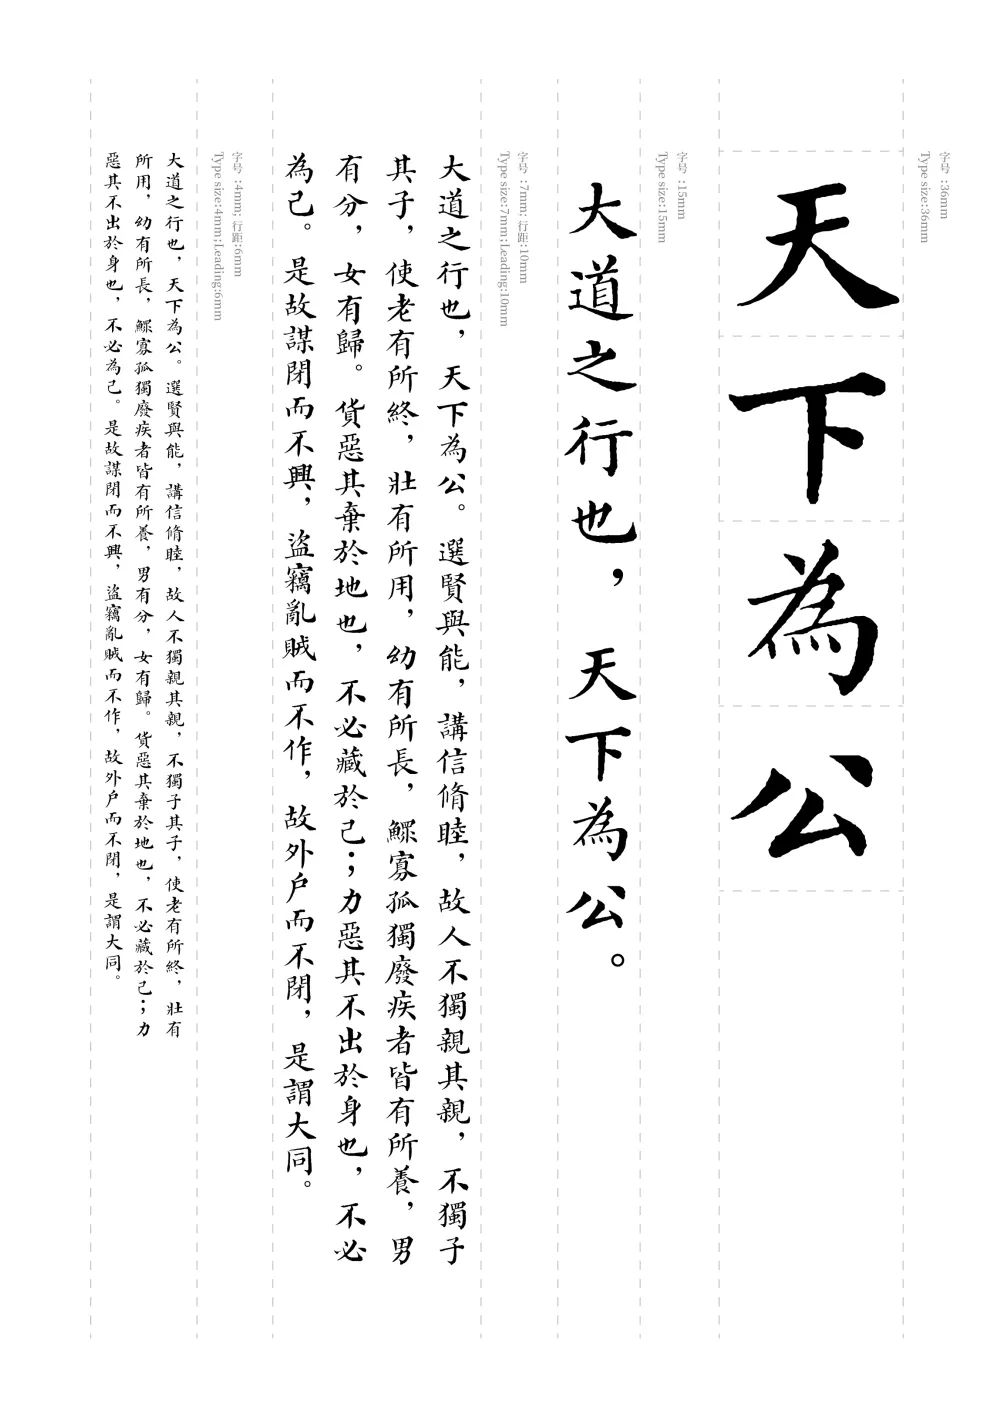 字号 :36mm
Type size:36mm
天下為公
字号 :15mm
Type size:15mm
大道之行也，天下為公。
字号 :7mm; 行距:10mm
Type size:7mm;Leading:10mm
大道之行也，天下為公。選賢與能，講信脩睦，故人不獨親其親，不獨子
其子，使老有所終，壯有所用，幼有所長，鰥寡孤獨廢疾者皆有所養，男
有分，女有歸。貨惡其棄於地也，不必藏於己；力惡其不出於身也，不必
為己。是故謀閉而不興，盜竊亂賊而不作，故外戶而不閉，是謂大同。
字号 :4mm; 行距:6mm
Type size:4mm;Leading:6mm
大道之行也，天下為公。選賢與能，講信脩睦，故人不獨親其親，不獨子其子，使老有所終，壯有
所用，幼有所長，鰥寡孤獨廢疾者皆有所養，男有分，女有歸。貨惡其棄於地也，不必藏於己；力
惡其不出於身也，不必為己。是故謀閉而不興，盜竊亂賊而不作，故外戶而不閉，是謂大同。